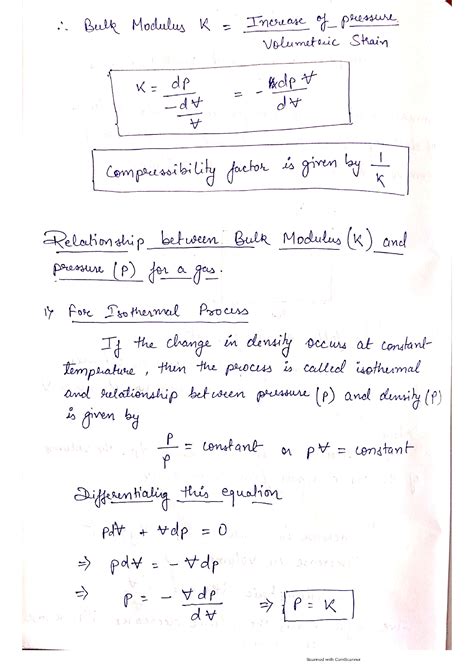 ∴ Bulk Modulus K = Increase of pressure / Volumetric Strain
K = dp / (-d∀/∀) = - dp ∀ / d∀
Compressibility factor is given by 1/K
Relationship between Bulk Modulus (K) and
pressure (P) for a gas.
1) For Isothermal Process
If the change in density occurs at constant
temperature, then the process is called isothermal
and relationship between pressure (P) and density (ρ)
is given by
P/ρ = constant or p∀ = constant
Differentiating this equation
pd∀ + ∀dp = 0
⇒ pd∀ = - ∀dp
⇒ p = - ∀dp / d∀ ⇒ P = K
Scanned with CamScanner